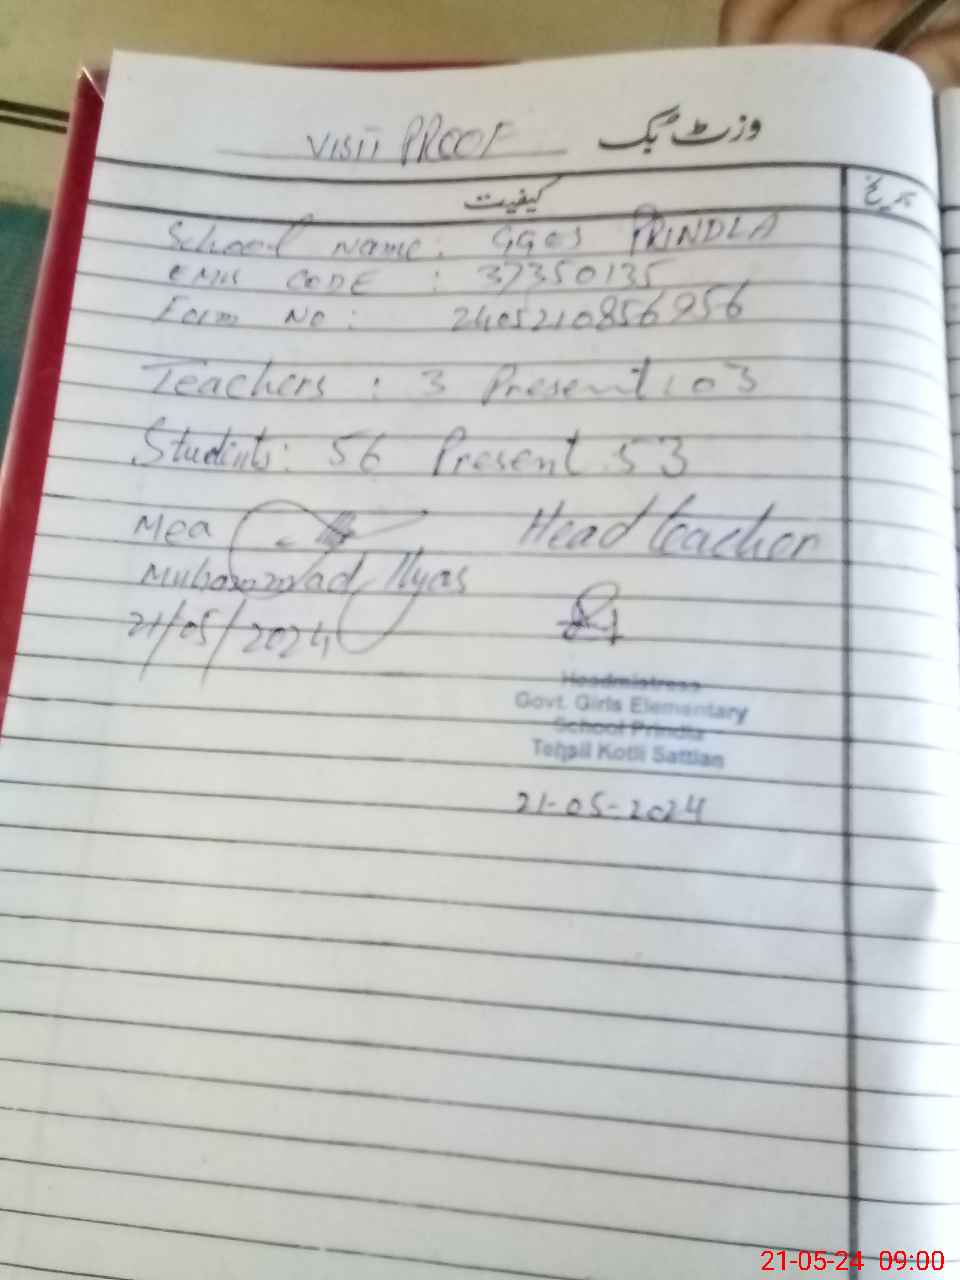 VISIT PROOF وزٹ بک
کیفیت تاریخ
School Name: GGES PRINDLA
EMIS CODE : 37350135
Form No : 2405210856956
Teachers : 3 Present : 03
Students: 56 Present 53
Mea Head teacher
Muhammad Ilyas
21/05/2024
Headmistress
Govt. Girls Elementary
School Prindla
Tehsil Kotli Sattian
21-05-2024
21-05-24 09:00